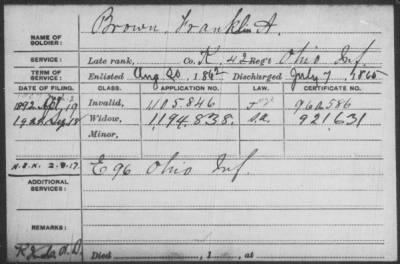 NAME OF SOLDIER: Brown, Franklin A.
SERVICE: Late rank, Co. K 42 Reg't Ohio Inf.
TERM OF SERVICE: Enlisted Aug 20, 1862 Discharged July 7, 1865
DATE OF FILING. CLASS. APPLICATION NO. LAW. CERTIFICATE NO.
1892 19 Invalid, 1105.846 960586
18 Widow, 1194.838. 921631
Minor,
E 96 Ohio Inf.
ADDITIONAL SERVICES:
Died , 1 , at